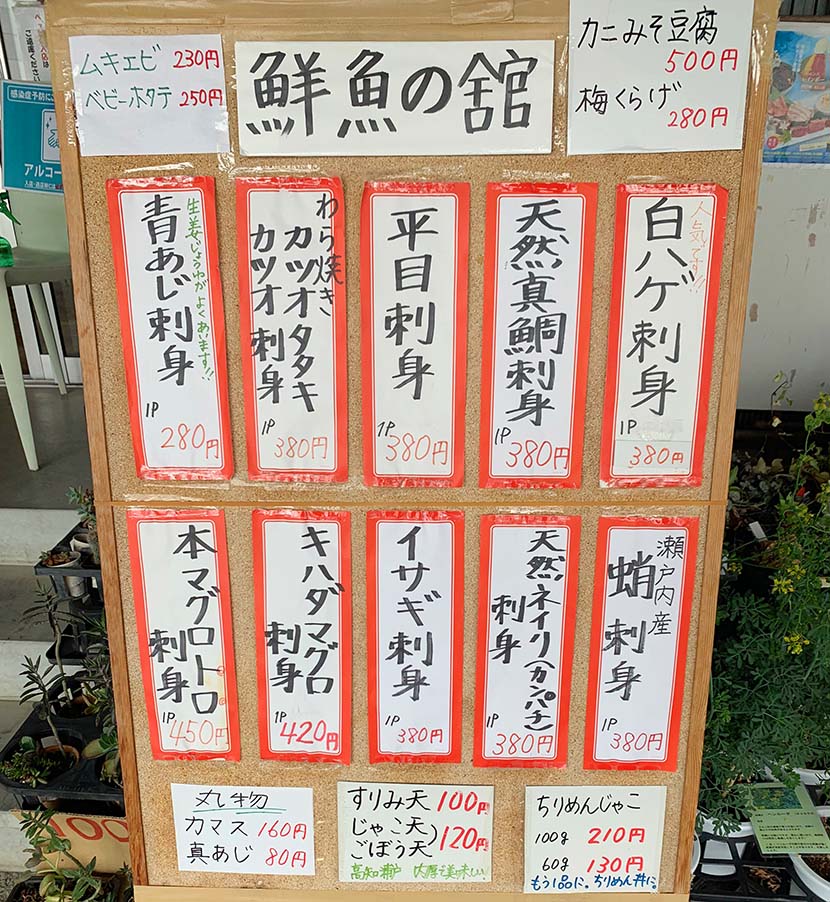 ムキエビ 230円
ベビーホタテ 250円
鮮魚の舘
カニみそ豆腐
500円
梅くらげ
280円
感染症予防に
アルコー
人気です!!
白ハゲ刺身
1P
380円
天然真鯛刺身
1P
380円
平目刺身
1P
380円
わら焼き
カツオタタキ
カツオ刺身
1P
380円
生姜じょうゆがよくあいます!!
青あじ刺身
1P
280円
瀬戸内産
蛸刺身
1P
380円
天然ネイリ(カンパチ)
刺身
1P
380円
イサギ刺身
1P
380円
キハダマグロ
刺身
1P
420円
本マグロトロ
刺身
1P
450円
丸物
カマス 160円
真あじ 80円
すりみ天 100円
じゃこ天
ごぼう天) 120円
高知瀬戸 肉厚で美味しい!
ちりめんじゃこ
100g 210円
60g 130円
もう1品に。ちりめん丼に。
100